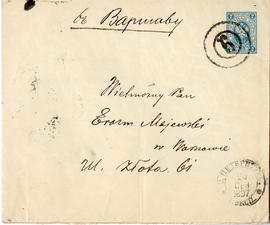 въ Варшаву
Wielmożny Pan
Erazm Majewski
w Warszawie
Ul. Złota 61